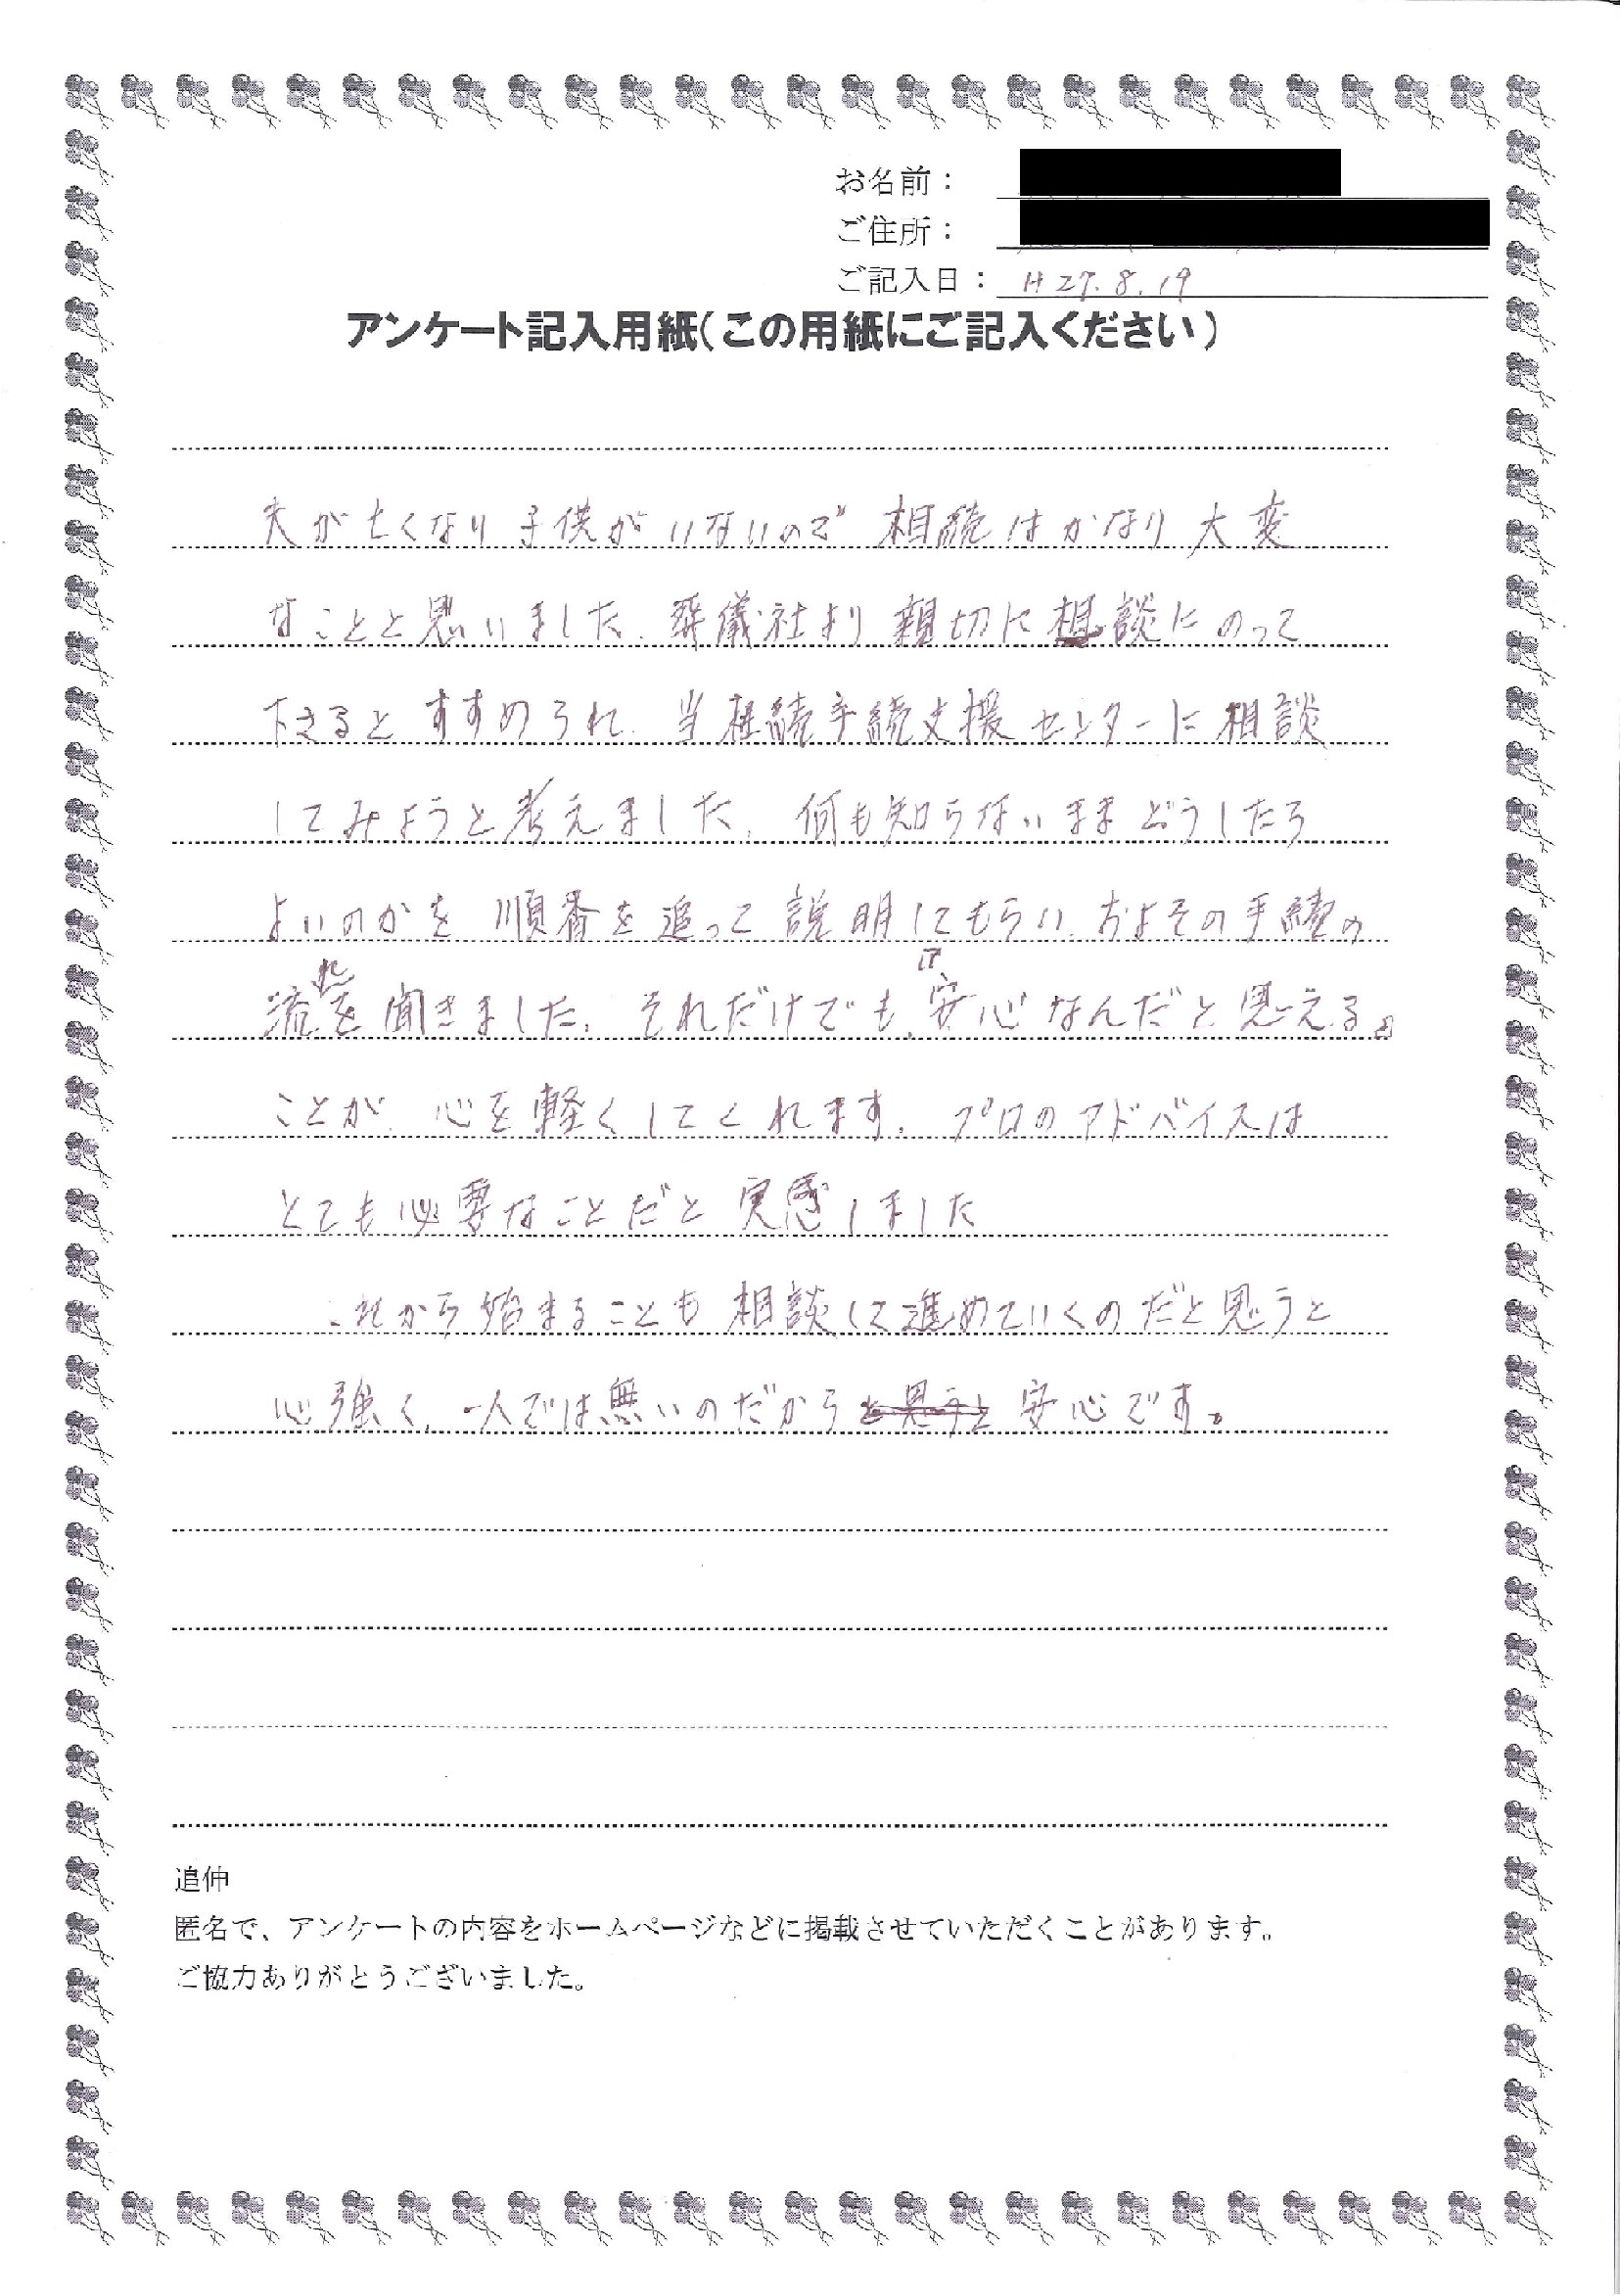 お名前：
ご住所：
ご記入日： H27.8.19
アンケート記入用紙（この用紙にご記入ください）
夫が亡くなり子供がいないので 相続はかなり 大変
なことと思いました、葬儀社より 親切に相談にのって
下さると すすめられ、当相続手続支援センターに相談
してみようと考えました、何も知らないままどうしたら
よいのかを 順番を追って説明してもらい、およその手続の
流れを聞きました、それだけでも、安心なんだと思える。
ことが、心を軽くしてくれます、プロのアドバイスは
とても必要なことだと 実感しました
これから始まることも 相談して進めていくのだと思うと
心強く、一人では無いのだからと思うと 安心です。
追伸
匿名で、アンケートの内容をホームページなどに掲載させていただくことがあります。
ご協力ありがとうございました。